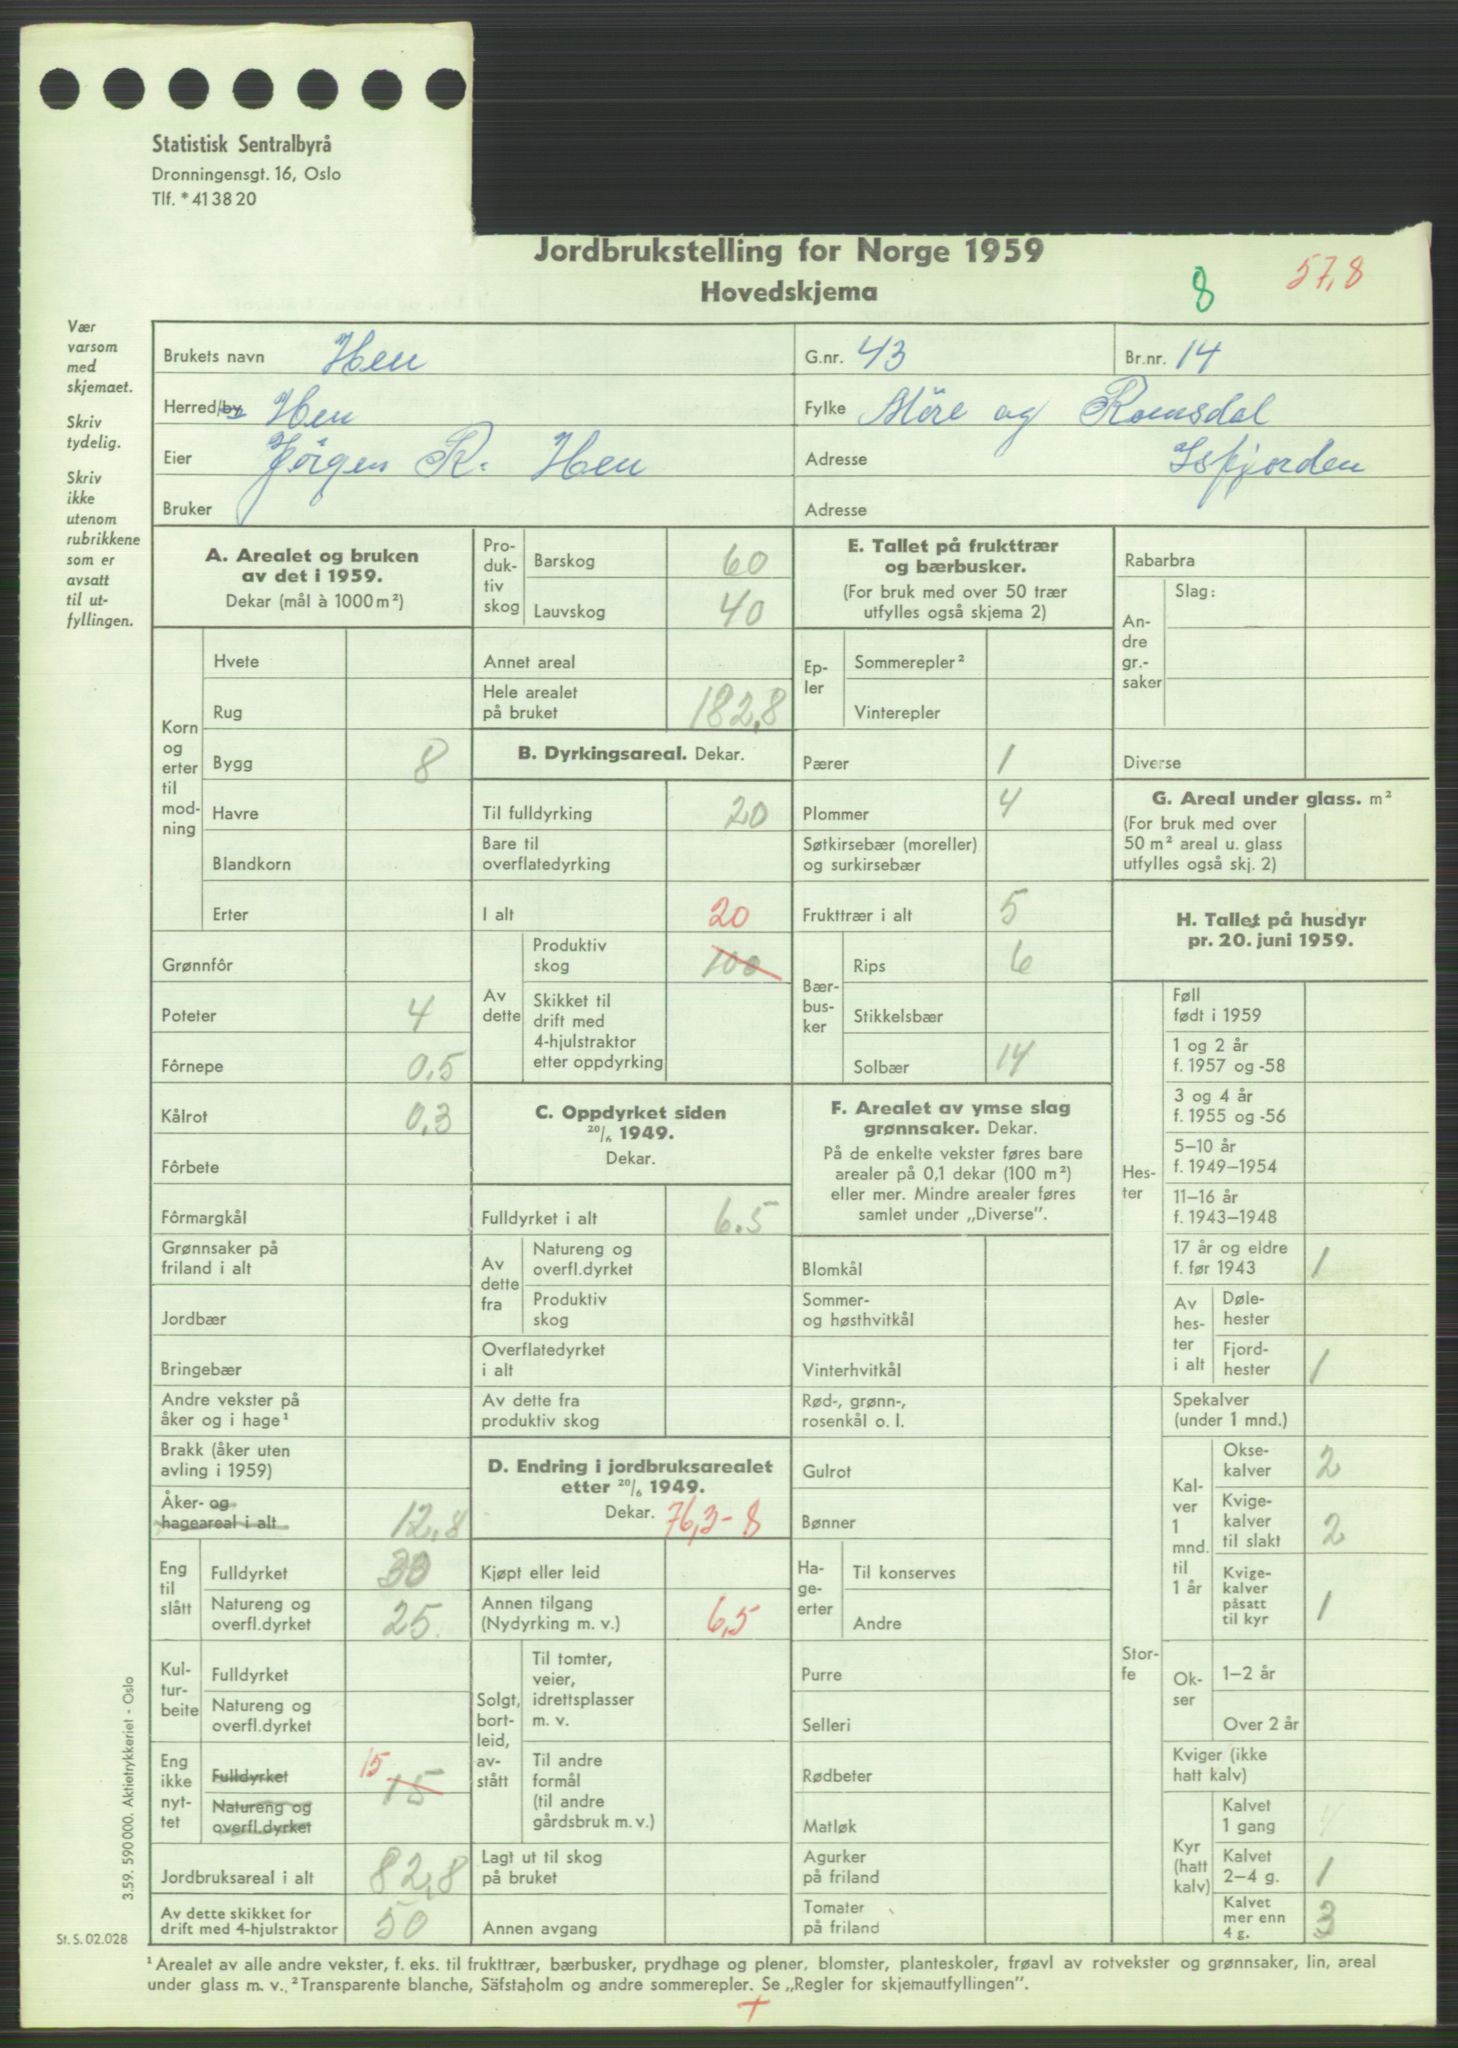 Statistisk Sentralbyrå
Dronningensgt. 16, Oslo
Tlf. * 41 38 20
Jordbrukstelling for Norge 1959
Hovedskjema
8
57,8
Vær
varsom
med
skjemaet.
Skriv
tydelig.
Skriv
ikke
utenom
rubrikkene
som er
avsatt
til ut-
fyllingen.
Brukets navn Hen G.nr. 43 Br.nr. 14
Herred/by Hen Fylke Möre og Romsdal
Eier Jörgen R. Hen Adresse Isfjorden
Bruker Adresse
A. Arealet og bruken
av det i 1959.
Dekar (mål à 1000 m²)
Korn
og
erter
til
mod-
ning
Hvete
Rug
Bygg 8
Havre
Blandkorn
Erter
Grønnfôr
Poteter 4
Fôrnepe 0,5
Kålrot 0,3
Fôrbete
Fôrmargkål
Grønnsaker på
friland i alt
Jordbær
Bringebær
Andre vekster på
åker og i hage¹
Brakk (åker uten
avling i 1959)
Åker- og
hageareal i alt 12,8
Eng
til
slått
Fulldyrket 30
Natureng og
overfl.dyrket 25
Kul-
tur-
beite
Fulldyrket
Natureng og
overfl.dyrket
Eng
ikke
nyt-
tet
Fulldyrket
15 15
Natureng og
overfl.dyrket
Jordbruksareal i alt 82,8
Av dette skikket for
drift med 4-hjulstraktor 50
Pro-
duk-
tiv
skog
Barskog 60
Lauvskog 40
Annet areal
Hele arealet
på bruket 182,8
B. Dyrkingsareal. Dekar.
Til fulldyrking 20
Bare til
overflatedyrking
I alt 20
Av
dette
Produktiv
skog 100
Skikket til
drift med
4-hjulstraktor
etter oppdyrking
C. Oppdyrket siden
20/6 1949.
Dekar.
Fulldyrket i alt 6.5
Av
dette
fra
Natureng og
overfl.dyrket
Produktiv
skog
Overflatedyrket
i alt
Av dette fra
produktiv skog
D. Endring i jordbruksarealet
etter 20/6 1949.
Dekar. 76,3-8
Kjøpt eller leid
Annen tilgang
(Nydyrking m. v.) 6,5
Solgt,
bort-
leid,
av-
stått
Til tomter,
veier,
idrettsplasser
m. v.
Til andre
formål
(til andre
gårdsbruk m. v.)
Lagt ut til skog
på bruket
Annen avgang
E. Tallet på frukttrær
og bærbusker.
(For bruk med over 50 trær
utfylles også skjema 2)
Ep-
ler
Sommerepler²
Vinterepler
Pærer 1
Plommer 4
Søtkirsebær (moreller)
og surkirsebær
Frukttrær i alt 5
Bær-
bus-
ker
Rips 6
Stikkelsbær
Solbær 14
F. Arealet av ymse slag
grønnsaker. Dekar.
På de enkelte vekster føres bare
arealer på 0,1 dekar (100 m²)
eller mer. Mindre arealer føres
samlet under „Diverse”.
Blomkål
Sommer-
og høsthvitkål
Vinterhvitkål
Rød-, grønn-,
rosenkål o. l.
Gulrot
Bønner
Ha-
ge-
erter
Til konserves
Andre
Purre
Selleri
Rødbeter
Matløk
Agurker
på friland
Tomater
på friland
Rabarbra
An-
dre
gr.-
saker
Slag:
Diverse
G. Areal under glass. m²
(For bruk med over
50 m² areal u. glass
utfylles også skj. 2)
H. Tallet på husdyr
pr. 20. juni 1959.
Hes-
ter
Føll
født i 1959
1 og 2 år
f. 1957 og -58
3 og 4 år
f. 1955 og -56
5–10 år
f. 1949–1954
11–16 år
f. 1943–1948
17 år og eldre
f. før 1943 1
Av
hes-
ter
i alt
Døle-
hester
Fjord-
hester 1
Stor-
fe
Spekalver
(under 1 mnd.)
Kal-
ver
1
mnd.
til
1 år
Okse-
kalver 2
Kvige-
kalver
til slakt 2
Kvige-
kalver
påsatt
til kyr 1
Ok-
ser
1–2 år
Over 2 år
Kviger (ikke
hatt kalv)
Kyr
(hatt
kalv)
Kalvet
1 gang 4
Kalvet
2–4 g. 1
Kalvet
mer enn
4 g. 3
3.59. 590 000. Aktietrykkeriet - Oslo
St. S. 02.028
¹ Arealet av alle andre vekster, f. eks. til frukttrær, bærbusker, prydhage og plener, blomster, planteskoler, frøavl av rotvekster og grønnsaker, lin, areal
under glass m. v. ² Transparente blanche, Säfstaholm og andre sommerepler. Se „Regler for skjemautfyllingen”.
+